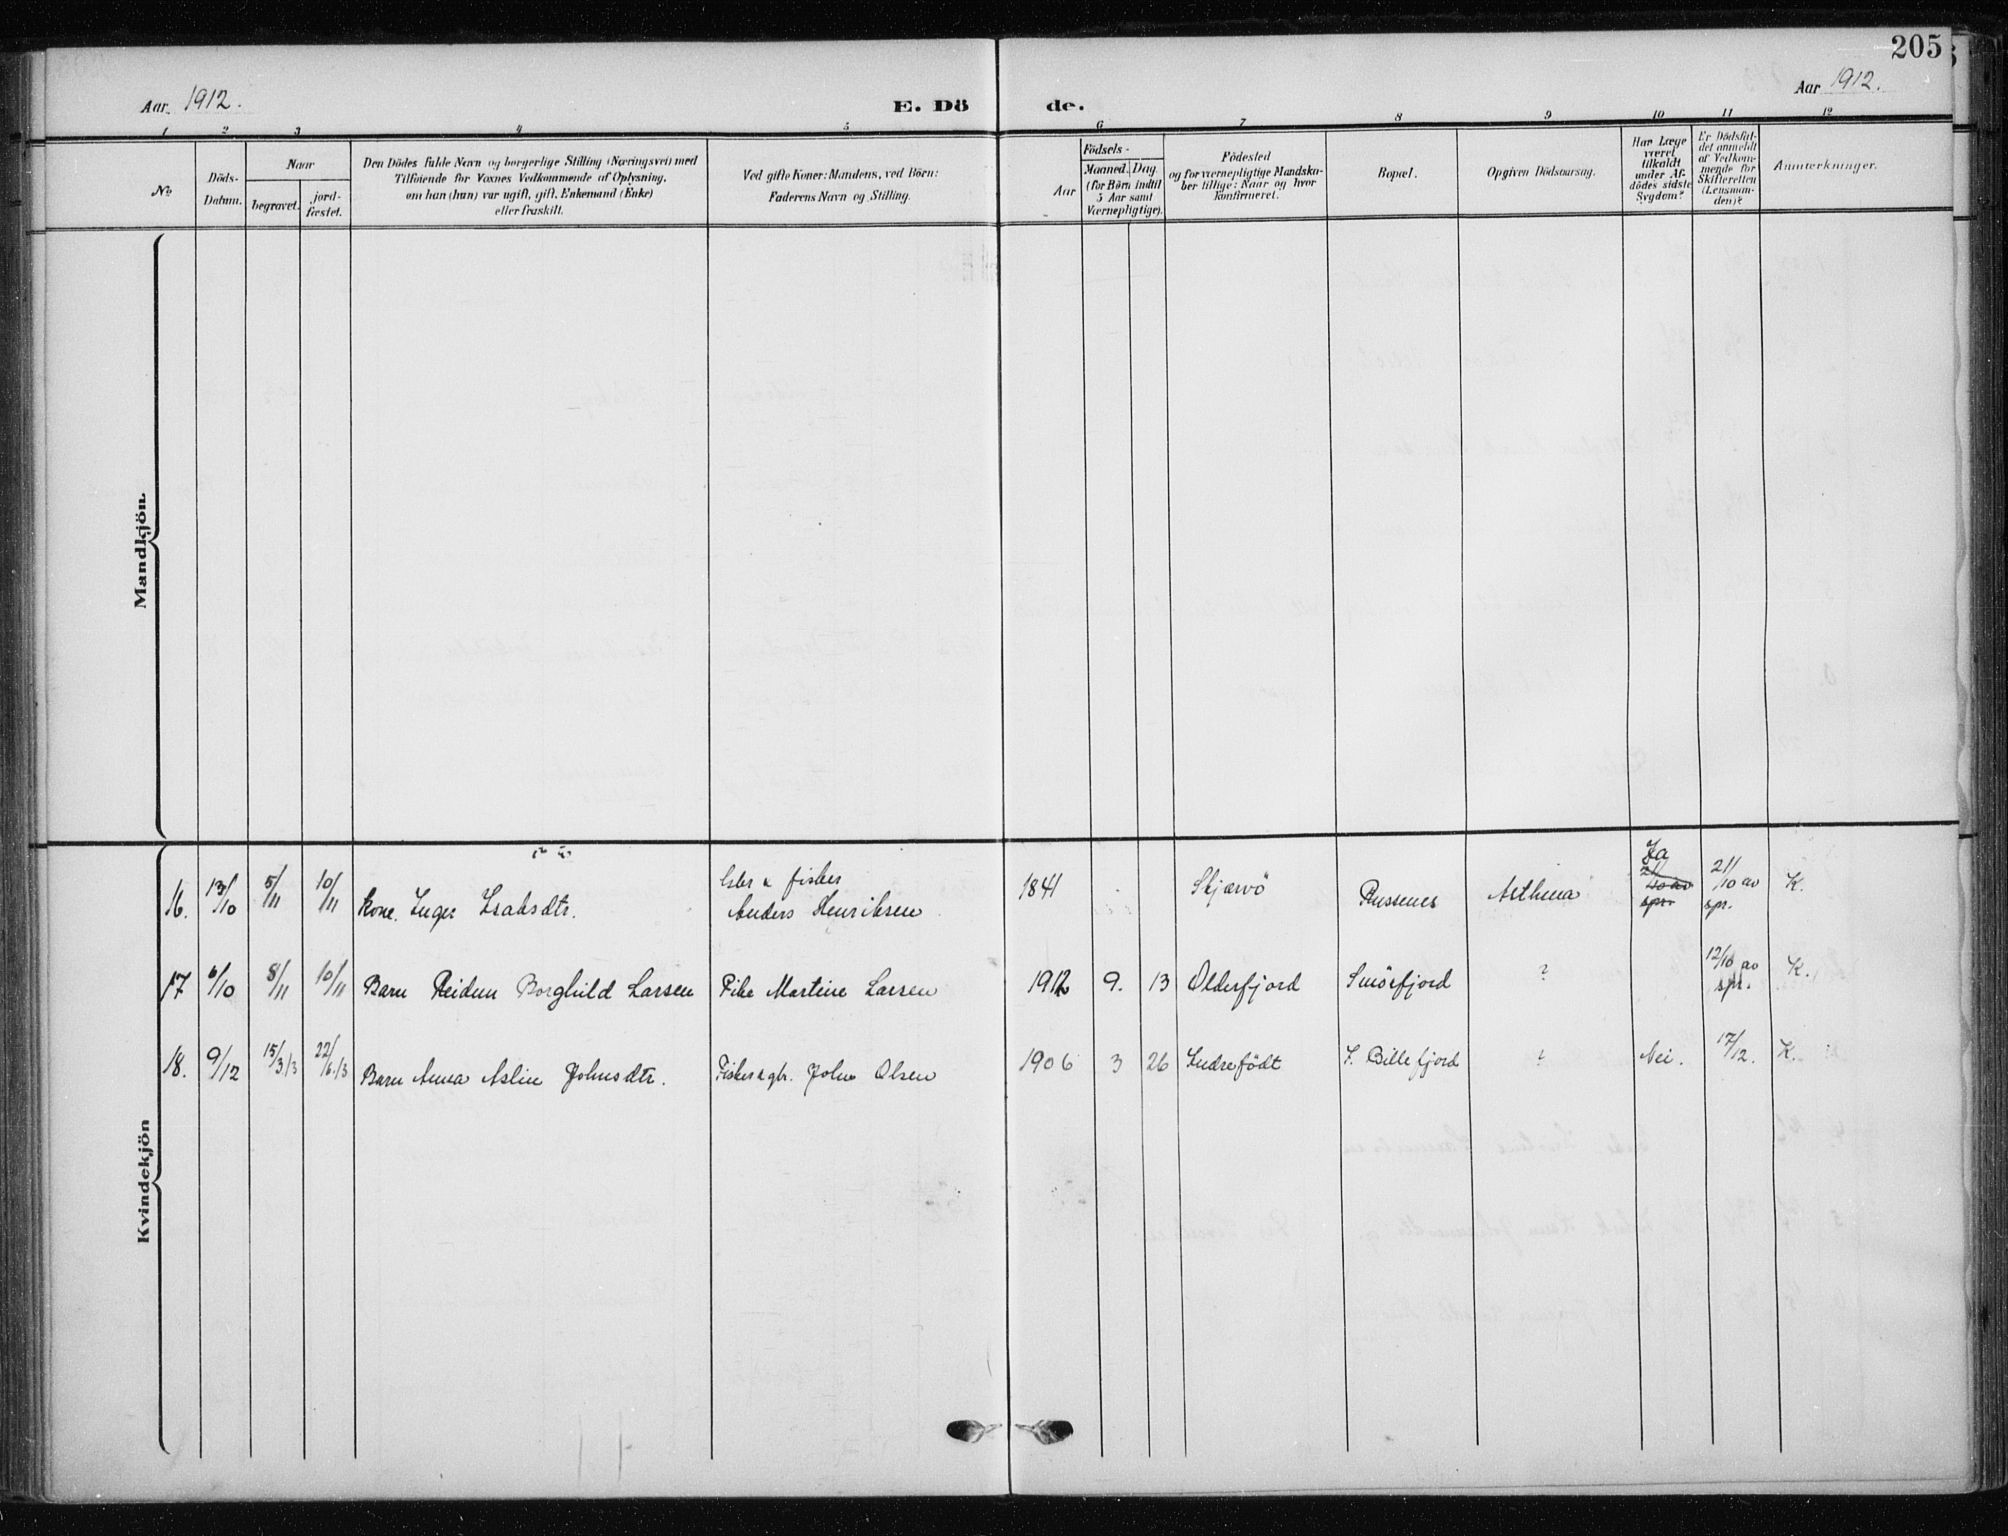 205
Aar 1912.
E. Dö de.
Aar 1912.
1 2 3 4 5 6 7 8 9 10 11 12
No
Döds-
Datum.
Naar
begravet.
jord-
fæstet.
Den Dödes fulde Navn og borgerlige Stilling (Næringsvei) med
Tilföiende for Voxnes Vedkommende af Oplysning,
om han (hun) var ugift, gift, Enkemand (Enke)
eller fraskilt.
Ved gifte Koner: Mandens, ved Börn:
Faderens Navn og Stilling.
Födsels-
Aar
Maaned.
Dag
(for Börn indtil
5 Aar samt
Værnepligtige).
Födested
og for værnepligtige Mandska-
ber tillige: Naar og hvor
konfirmeret.
Bopæl.
Opgiven Dödsaarsag.
Har Læge
været
tilkaldt
under Af-
dödes sidste
Sygdom?
Er Dödsfal-
det anmeldt
af Vedkom-
mende for
Skifteretten
(Lensman-
den)?
Anmærkninger.
Mandkjön.
Kvindekjön
16. 13/10 5/11 10/11 Kone. Inger Isaksdtr. fisker Anders Henriksen 1841 Skjærvö Russenes Asthma Ja 21/10 av spr. K.
17 6/10 8/11 10/11 Barn Reidun Borghild Larsen Pike Martine Larsen 1912 9. 13 Olderfjord Smörfjord ? 12/10 av spr. K.
18. 9/12 15/3 13 22/6 13 Barn Anna Aslin Johnsdtr. Fisker & gbr. John Olsen 1906 3 26 Indrefödt I. Billefjord ? Nei. 17/12. K.